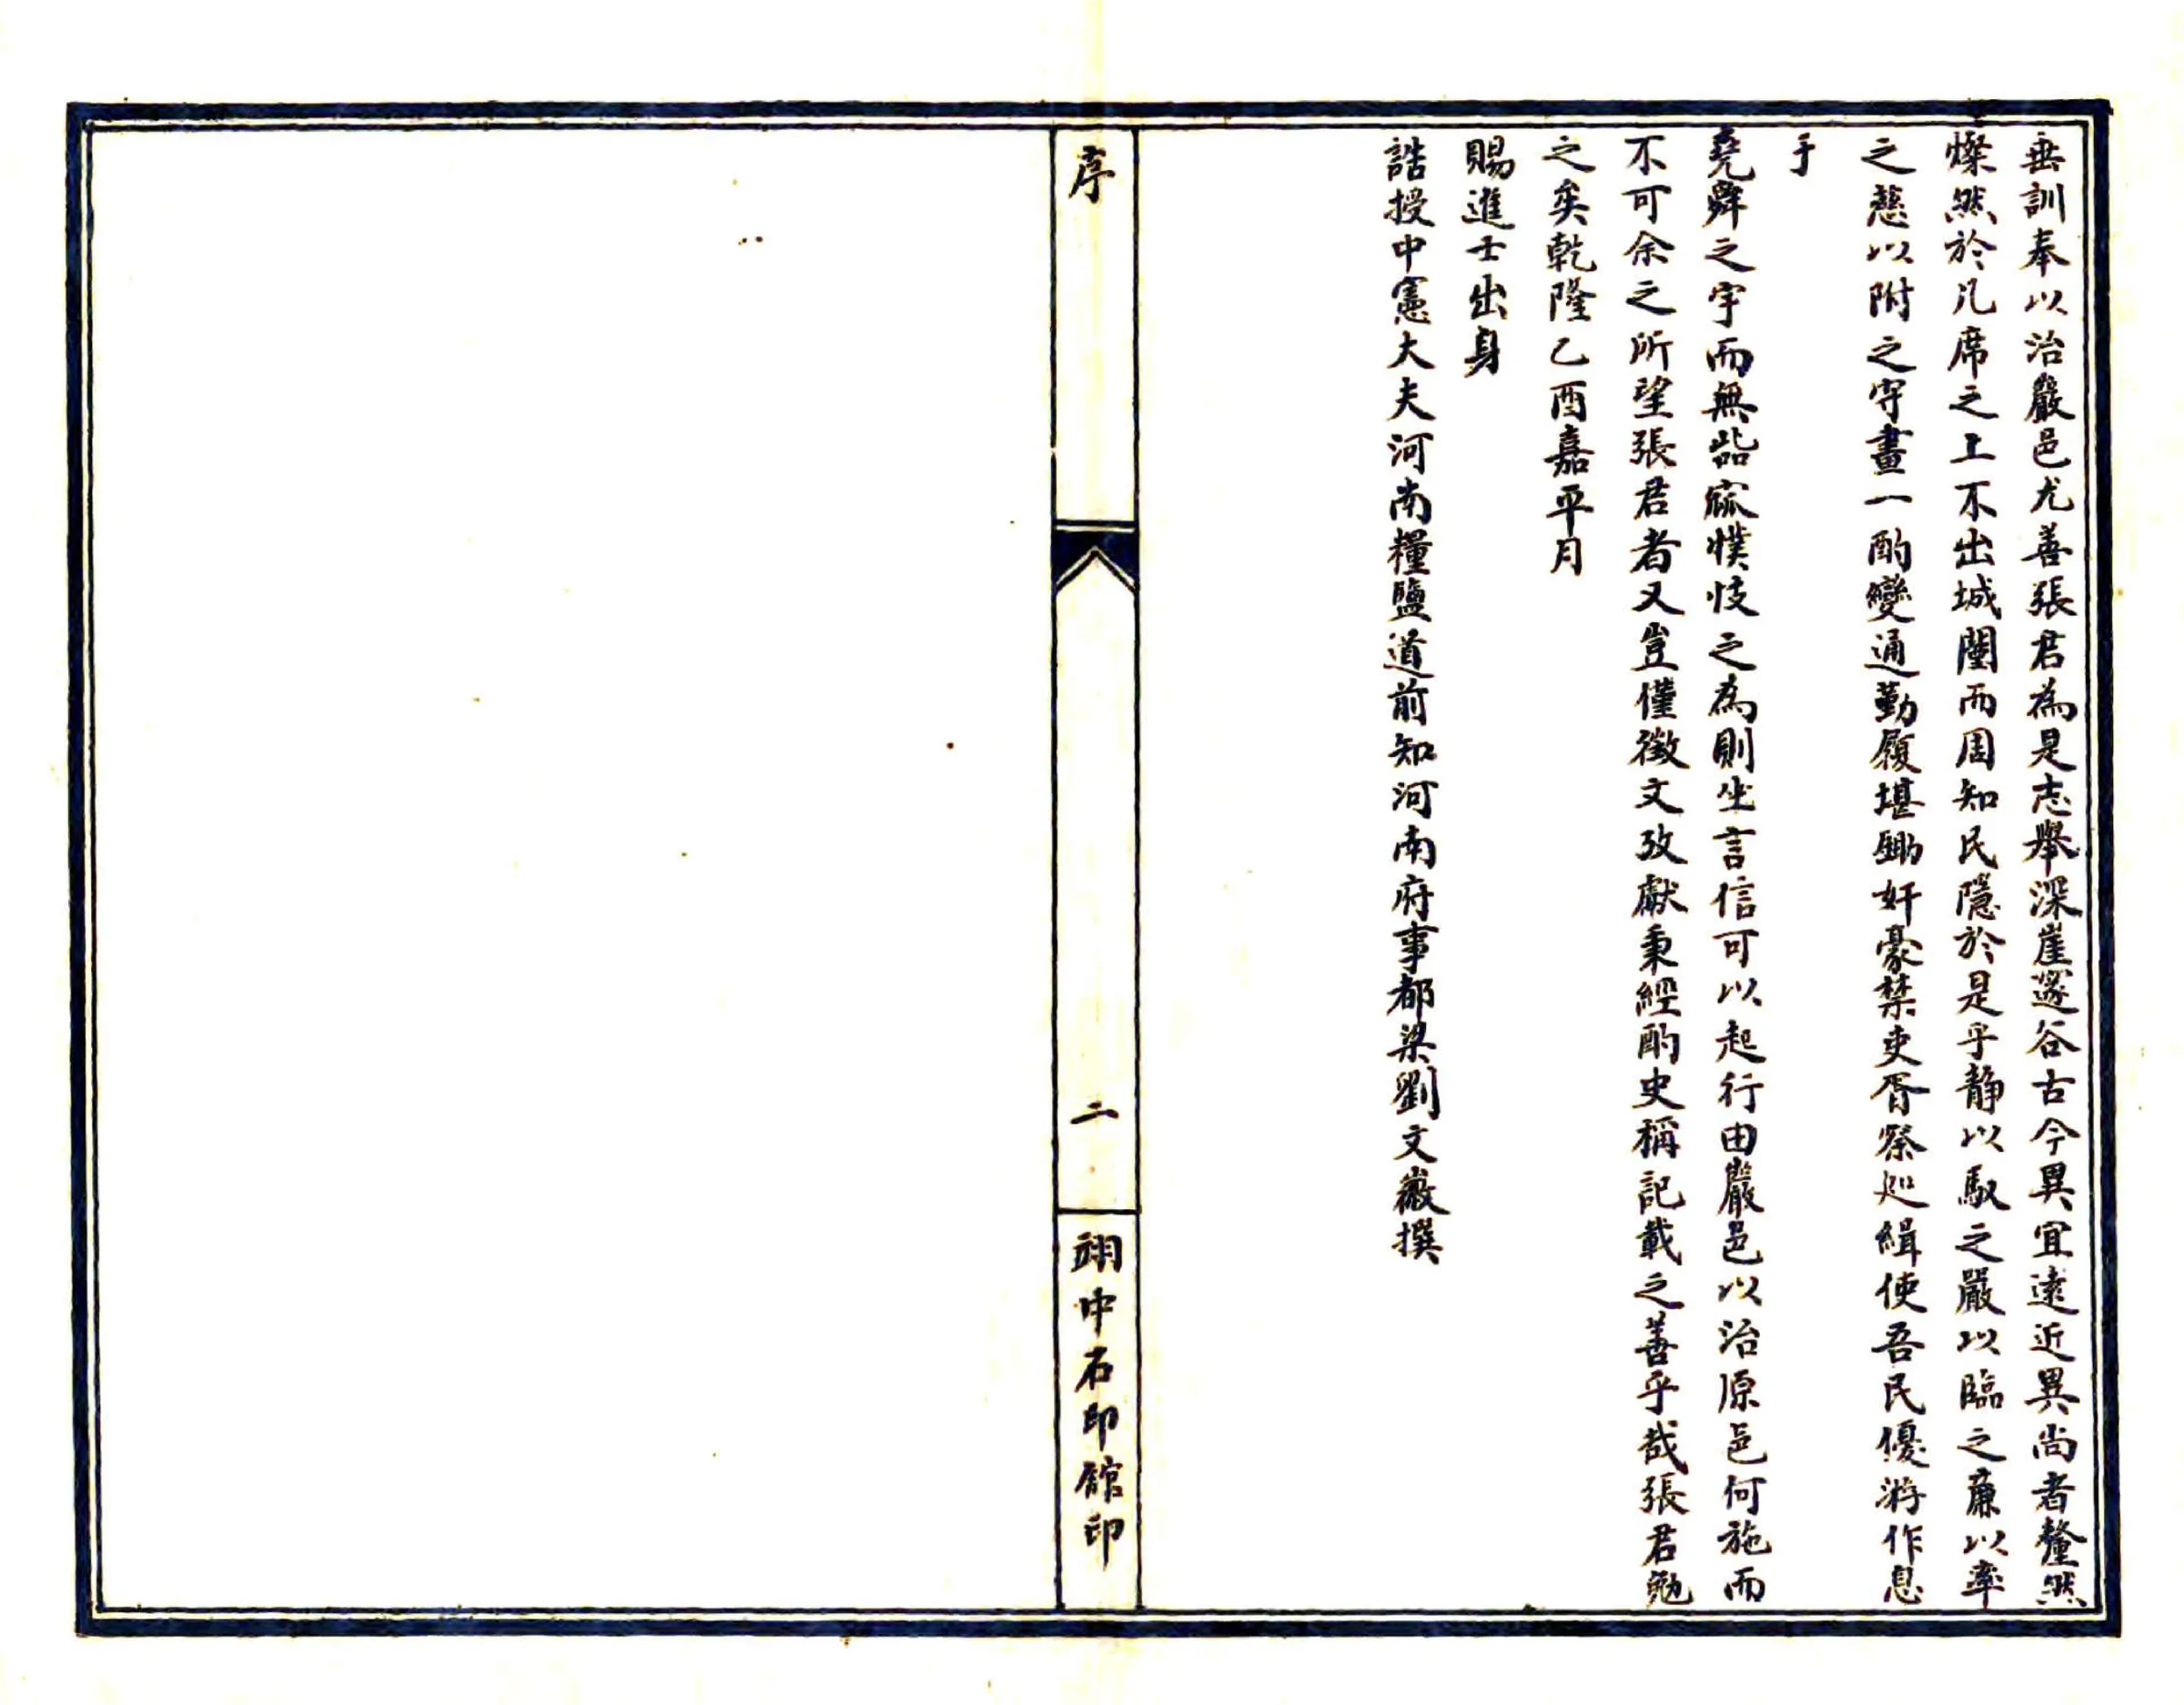 垂訓奉以治嚴邑尤善張君為是志舉深崖邃谷古今異宜遠近異尚者釐然
燦然於几席之上不出城闉而周知民隱於是乎靜以馭之嚴以臨之廉以率
之慈以附之守畫一酌變通勤履堪鋤奸豪禁吏胥祭祀緝使吾民優游作息
于
堯舜之宇而無呰窳懻忮之為則坐言信可以起行由嚴邑以治原邑何施而
不可余之所望張君者又豈僅徵文攷獻秉經酌史稱記載之善乎哉張君勉
之矣乾隆乙酉嘉平月
賜進士出身
誥授中憲大夫河南糧鹽道前知河南府事都梁劉文徽撰
序
二
翊中石印館印